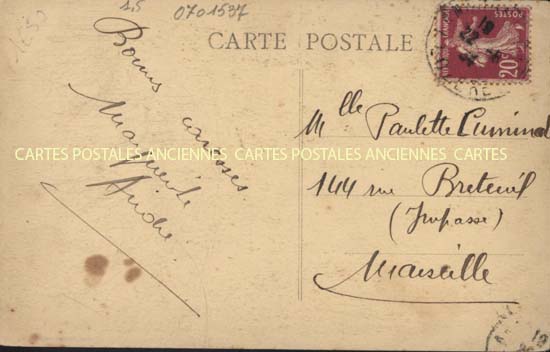 0701537
CARTE POSTALE
POSTES
20c
Bonnes
caresses.
Marguerite
André
Mlle Paulette
144 rue Breteuil
(Impasse)
Marseille
CARTES POSTALES ANCIENNES CARTES POSTALES ANCIENNES CARTES